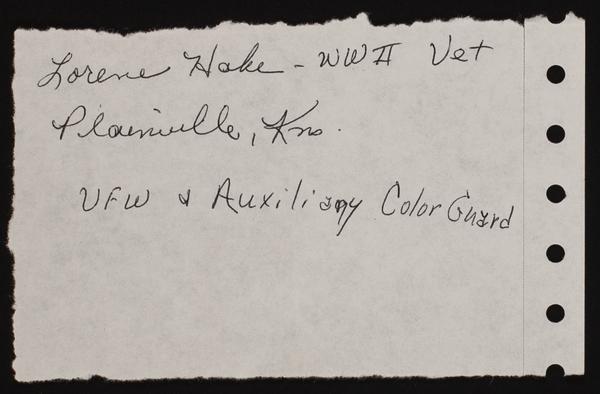 Lorene Hake - WWII Vet
Plainville, Kns.
VFW & Auxiliary Color Guard